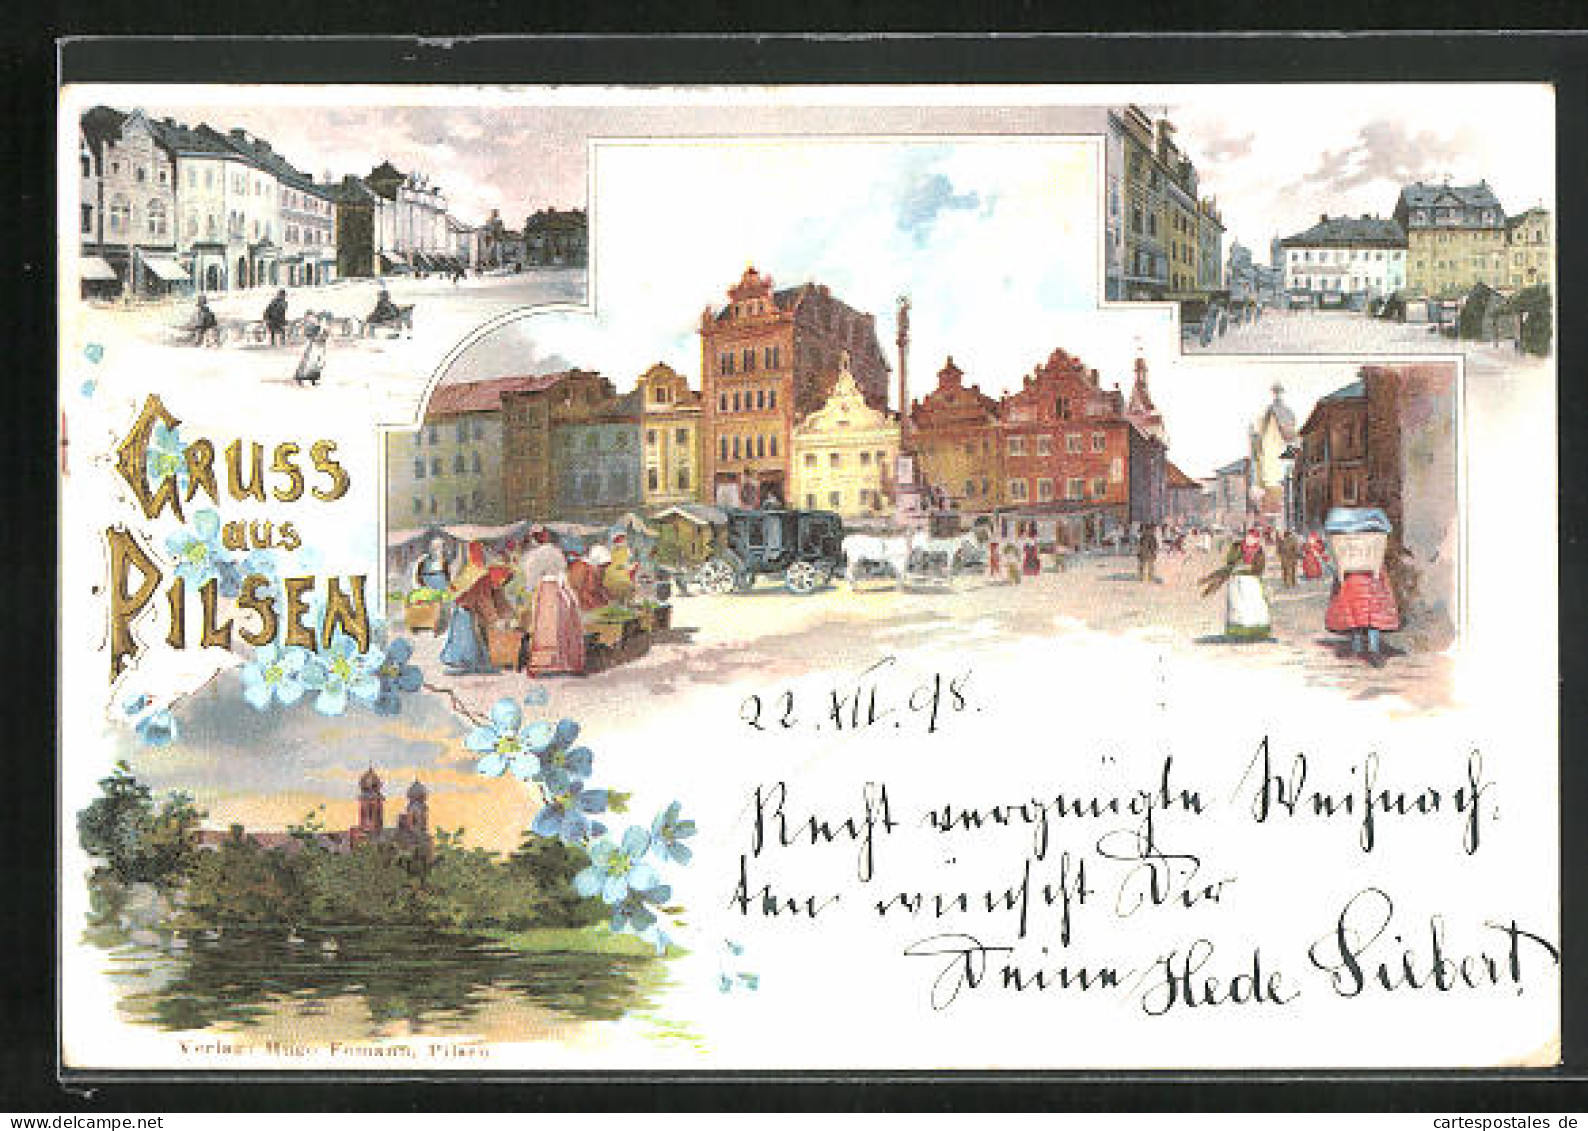 GRUSS
aus
PILSEN
22. XII. 98.
Recht vergnügte Weihnach-
ten wünscht Dir
Deine Hede Siebert.
Verlag: Hugo Pilsen
cartespostales de